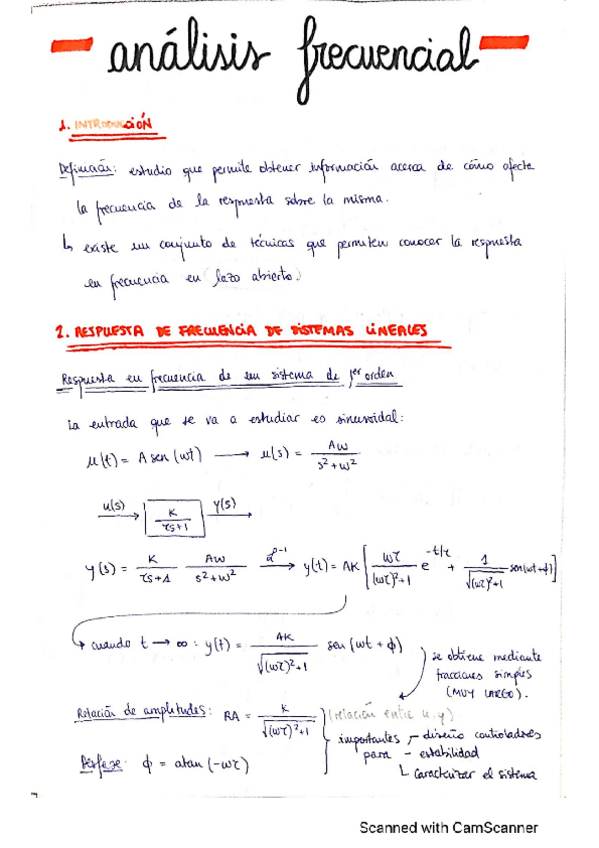 análisis frecuencial
1. INTRODUCCIÓN
Definición: estudio que permite obtener información acerca de cómo afecte
la frecuencia de la respuesta sobre la misma.
↳ existe un conjunto de técnicas que permiten conocer la respuesta
en frecuencia en (lazo abierto.)
2. RESPUESTA DE FRECUENCIA DE SISTEMAS LINEALES
Respuesta en frecuencia de un sistema de 1er orden
La entrada que se va a estudiar es sinusoidal:
u(t) = A sen(wt) → u(s) = Aw / (s² + w²)
u(s) → K / (τs+1) → y(s)
y(s) = K / (τs+1) · Aw / (s² + w²) → ℒ⁻¹ y(t) = AK [ wτ / ((wτ)²+1) e^(-t/τ) + 1 / √((wτ)²+1) sen(wt+ϕ) ]
↳ cuando t → ∞ : y(t) = AK / √((wτ)²+1) sen (wt + ϕ)
se obtiene mediante
fracciones simples
(MUY LARGO).
Relación de amplitudes: RA = K / √((wτ)²+1) (relación entre u, y)
Desfase: ϕ = atan (-wτ)
importantes para
- diseño controladores
- estabilidad
↳ caracterizar el sistema
Scanned with CamScanner